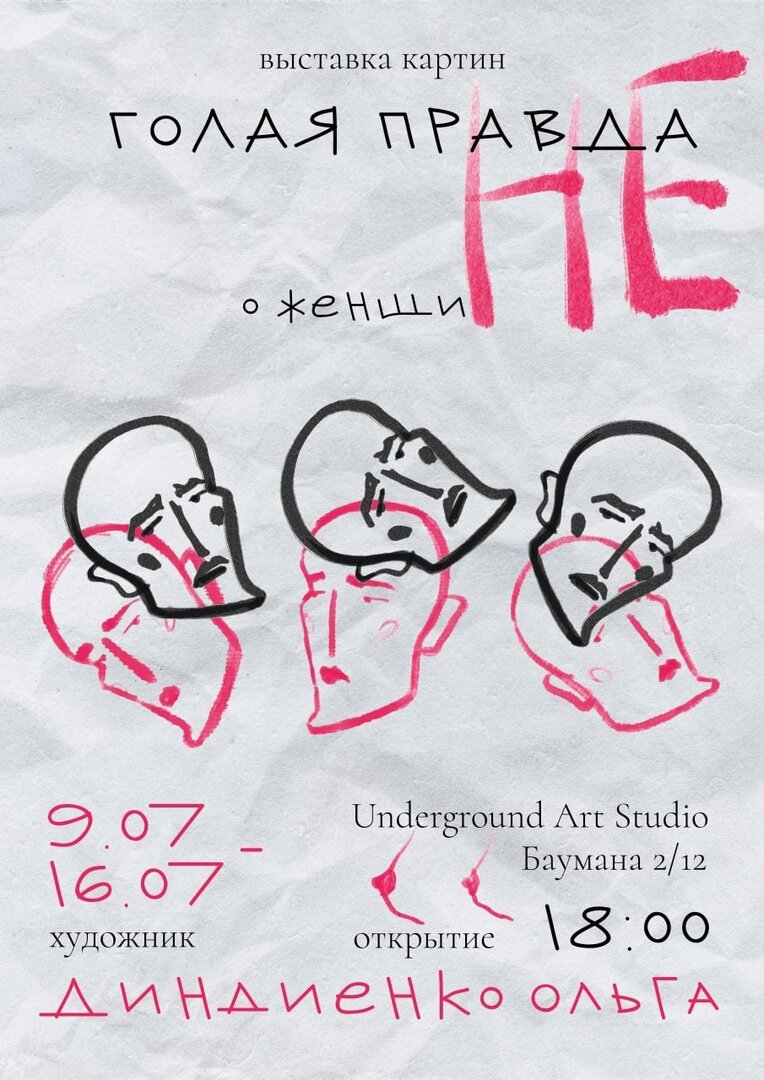 выставка картин
ГОЛАЯ ПРАВДА
о женщиНЕ
9.07 –
16.07
художник
Underground Art Studio
Баумана 2/12
открытие 18:00
ДИНДИЕНКО ОЛЬГА